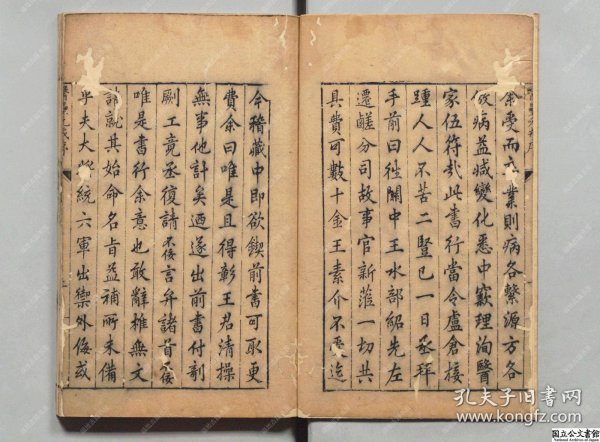 余受而卒業則病各繫源方各
攷病益减變化悉中竅理洵醫
家伍符㢤此書行當令盧倉接
踵人人不苦二豎已一日丞拜
手前曰徃關中王水部紹先左
遷鹺分司故事官新蒞一切共
具費可數十金王素介不
今稽藏中即欲鍥前書可取更
費余曰唯是且得彰王君清操
無事他計矣迺遂出前書付剞
劂工竟丞復請不佞言弁諸首不佞
唯是書行余意也敢辭椎無文
詶就其始命名旨益補所未備
乎夫大將統六軍出禦外侮或
孔夫子旧书网
www.kongfz.com
国立公文書館
National Archives of Japan